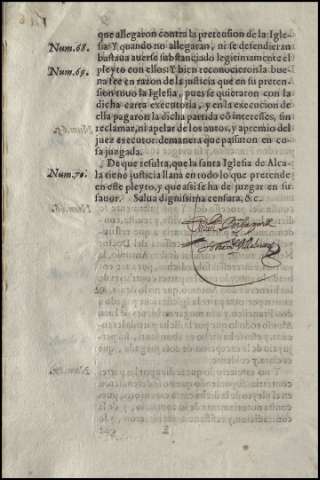 que allegaron contra la pretension de la Igle-
Num.68. sia. Y quando no allegaran, ni se defendieran
bastaua auerse substanciado legitimamente el
Num.69. pleyto con ellos: Y bien reconocieron la bue-
na fee en razon de la justicia que en su preten-
sion tuuo la Iglesia, pues se quietaron con la
dicha carta executoria, y en la execucion de
ella pagaron la dicha partida cō interesses, sin
reclamar, ni apelar de los autos, y apremio del
juez executor. demanera que passaron en co-
sa juzgada.
De que resulta, que la santa Iglesia de Alca-
Num.70. la tiene justicia llana en todo lo que pretende
en este pleyto, y que assi se ha de juzgar en su
fauor. Salua dignissima censura, &c.